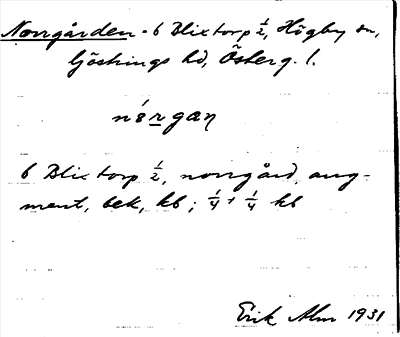 Norrgården - 6 Blixtorp ½, Högby sn,
Göstrings hd, Österg. l.
nórgaṇ
6 Blixtorp ½, norrgård, aug-
ment, bek, kb; ¼ + ¼ kb
Erik Alm 1931